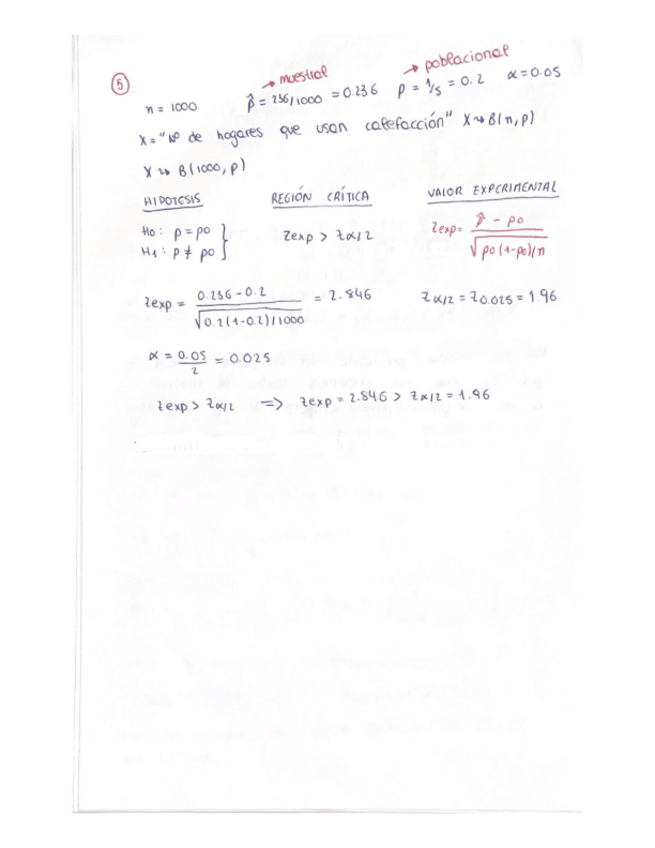 ⑤
→ muestral → poblacional
n = 1000 p̂ = 236/1000 = 0.236 p = 1/5 = 0.2 α = 0.05
X = "Nº de hogares que usan calefacción" X ⇝ B(n, p)
X ⇝ B(1000, p)
HIPOTESIS REGIÓN CRÍTICA VALOR EXPERIMENTAL
H0: p = p0 }
H1: p ≠ p0
Zexp > Zα/2
Zexp = p̂ - p0 / √p0(1-p0)/n
Zexp = 0.236 - 0.2 / √0.2(1-0.2)/1000 = 2.846 Zα/2 = Z0.025 = 1.96
α = 0.05/2 = 0.025
Zexp > Zα/2 => Zexp = 2.846 > Zα/2 = 1.96